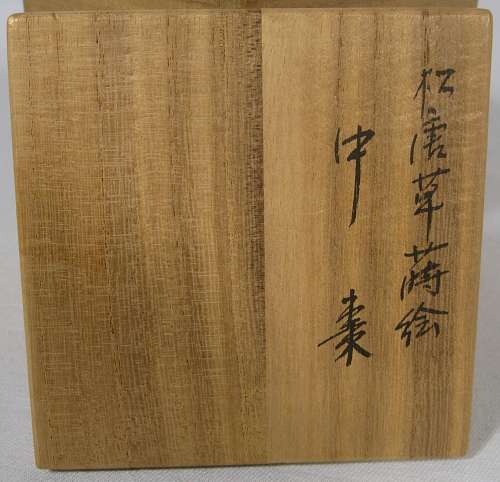 松唐草蒔絵
中棗